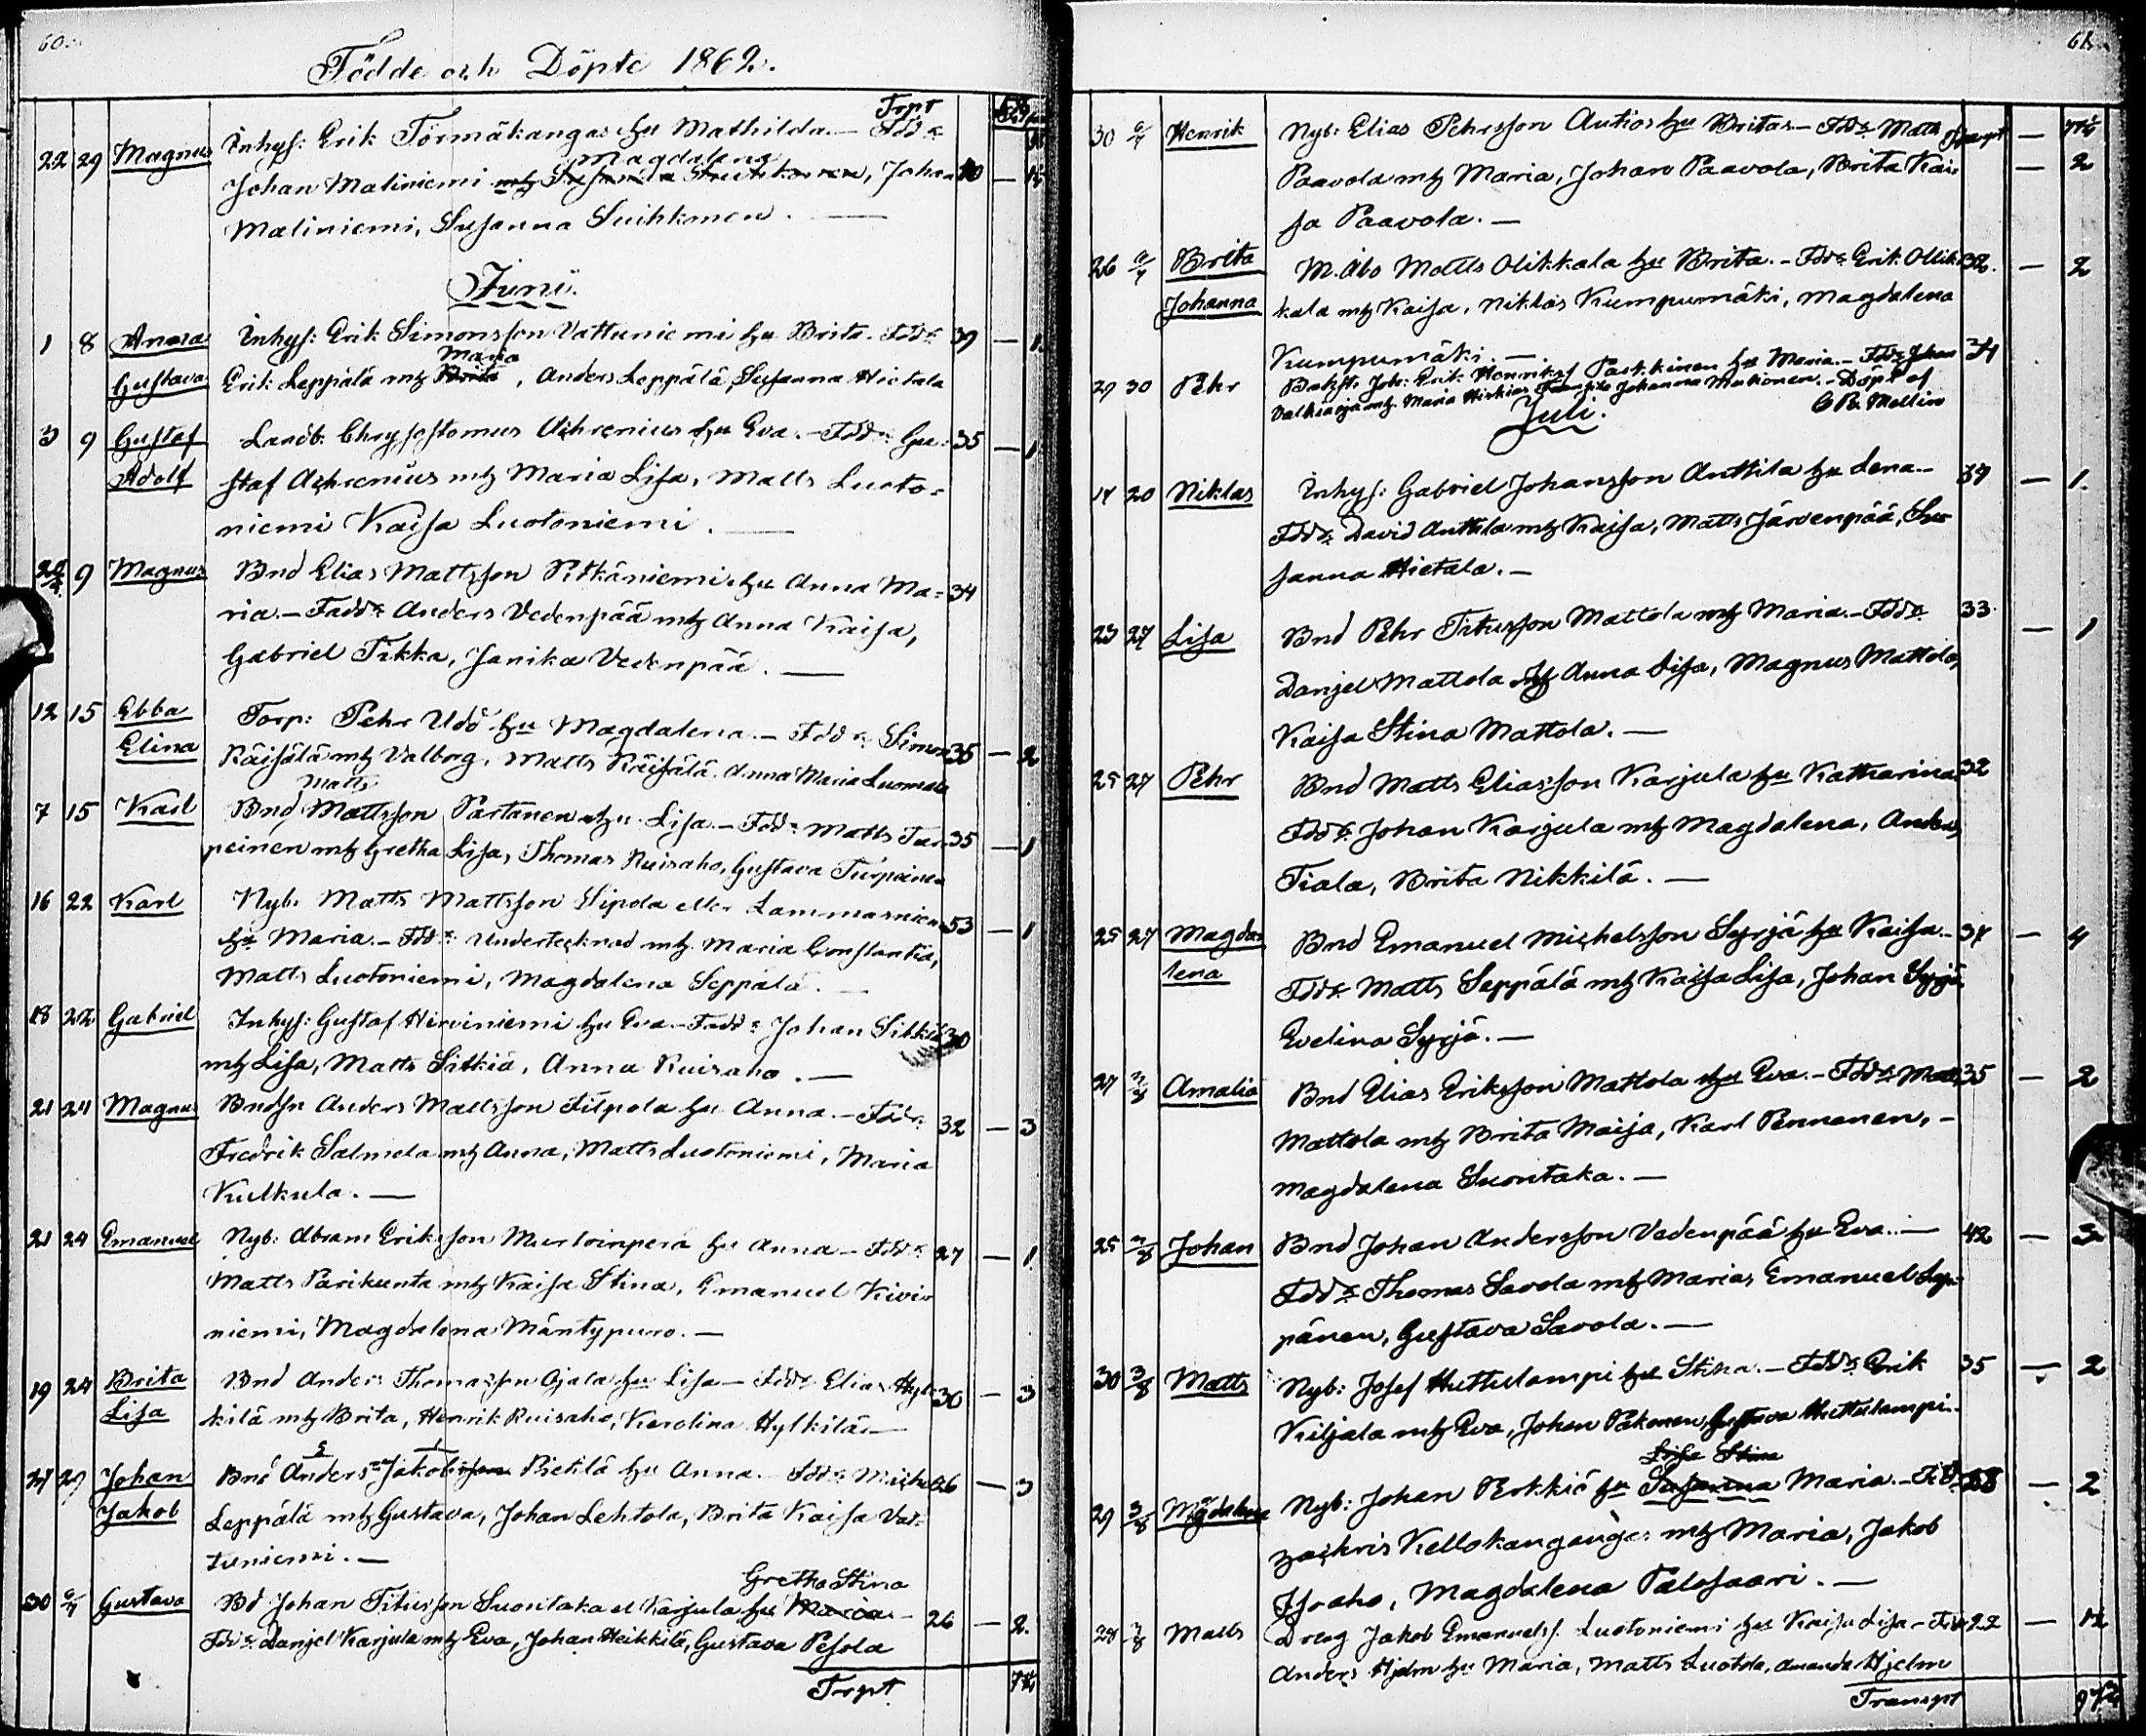 60.
Födde och Döpte 1862.
Trpt
22 29 Magnus Inhys: Erik Törmäkangas hu Mathilda.— Fdd:r
Magdalena
Johan Maliniemi mh Susanna Suihkonen, Johan 40 —
Maliniemi, Susanna Suihkonen. —
Juni.
1 8 Anna Inhys: Erik Simonsson Vattuniemi hu Brita. Fdd:r 39 — 1.
Maria
Gustava Erik Leppälä mh Brita, Anders Leppälä, Susanna Hietala
3 9 Gustaf Landb. Chrysostomus Achrenius hu Eva.— Fdd:r Gu- 35 — 1
Adolf staf Achrenius mh Maria Lisa, Matts Luoto-
niemi Kaisa Luotoniemi. —
9 Magnus Bnd Elias Mattsson Pitkäniemi hu Anna Ma- 34
ria.— Fadd:r Anders Vedenpää mh Anna Kaisa,
Gabriel Tikka, Janika Vedenpää. —
12 15 Ebba Torp: Pehr Udd hu Magdalena.— Fdd:r Simon
Elina Räisälä mh Valborg, Matts Räisälä, Anna Maria Luomala 35 — 2
Matts
7 15 Karl Bnd Mattsson Partanen hu Lisa.— Fdd:r Matts Tur- 35 — 1
peinen mh Gretha Lisa, Thomas Ruisaho, Gustava Turpeinen
16 22 Karl Nyb. Matts Mattsson Sipola eller Lammasniemi 53 — 1
hu Maria.— Fdd:r Undertecknad mh Maria Constantia,
Matts Luotoniemi, Magdalena Seppälä. —
18 22 Gabriel Inhys: Gustaf Hirviniemi hu Eva.— Fadd:r Johan Sitkiä 30
mh Lisa, Matts Sitkiä, Anna Ruisaho. —
21 24 Magnus Bndsn Anders Mattsson Filpola hu Anna.— Fdd:r 32 — 3
Fredrik Salmela mh Anna, Matts Luotoniemi, Maria
Kulkula. —
21 24 Emanuel Nyb: Abram Eriksson Murtoinperä hu Anna— Fdd:r 27 — 1
Matts Parikunta mh Kaisa Stina, Emanuel Kivi-
niemi, Magdalena Mäntypuro. —
19 24 Brita Bnd Anders Thomasson Ojala hu Lisa— Fdd:r Elias Hyl- 30 — 3
Lisa kilä mh Brita, Henrik Ruisaho, Karolina Hylkilä—
29 Johan Bnd Anders Jakobsson Pietilä hu Anna.— Fdd:r Michel 26 — 3
Jakob Leppälä mh Gustava, Johan Lehtola, Brita Kaisa Vat-
tuniemi. —
Gretha Stina
30 6/7 Gustava Bd Johan Titusson Suontaka el Karjula hu Maria— 26 — 2.
Fdd:r Danjel Karjula mh Eva, Johan Heikkilä, Gustava Pesola
Trpt
61.
Transpt
30 6/7 Henrik Nyb: Elias Pehrsson Autio hu Brita— Fdd:r Matts —
Paavola mh Maria, Johan Paavola, Brita Kai- — 2
sa Paavola. —
26 6/7 Brita M. Åbo Matts Olikkala hu Brita.— Fdd:r Erik Ollik- 32. — 2
Johanna kala mh Kaisa, Niklas Kumpumäki, Magdalena
Kumpumäki. — 34
29 30 Pehr Erik Henriksf Parkkinen hu Maria.— Fdd:r Johan
Valkiaoja mh Maria Johanna Mutionen.— Döpt af
C R. Mellin
Juli.
14 20 Niklas Inhys: Gabriel Johansson Anttila hu Lena.— 37 — 1.
Fdd:r David Anttila mh Kaisa, Matts Järvenpää, Su-
sanna Hietala. —
23 27 Lisa Bnd Pehr Titusson Mattola mh Maria.— Fdd:r 33. — 1
Danjel Mattola mh Anna Lisa, Magnus Mattola,
Kaisa Stina Mattola. —
25 27 Pehr Bnd Matts Eliasson Karjula hu Katharina 32
Fdd:r Johan Karjula mh Magdalena, Anders
Tiala, Brita Nikkilä. —
25 27 Magda- Bnd Emanuel Michelsson Syrjä hu Kaisa.— 34 — 4
lena Fdd:r Matts Seppälä mh Kaisa Lisa, Johan Syrjä
Evelina Syrjä. —
27 3/8 Amalia Bnd Elias Eriksson Mattola hu Eva.— Fdd:r Matts 35 — 2
Mattola mh Brita Maija, Karl Pennanen, —
Magdalena Suontaka. —
25 3/8 Johan Bnd Johan Andersson Vedenpää hu Eva.— 42 — 3
Fdd:r Thomas Savola mh Maria, Emanuel Lep-
pänen, Gustava Savola. —
30 3/8 Matts Nyb: Josef Huttulampi hu Stina.— Fdd:r Erik 35 — 2
Kiljala mh Eva, Johan Pakonen, Gustava Huttulampi.
Lisa Stina
29 3/8 Magdalena Nyb: Johan Perkkiö hu Susanna Maria.— Fdd:r — 2
Zachris Kellokangas mh Maria, Jakob
Isoaho, Magdalena Palosaari. —
28 3/8 Matts Dreng Jakob Emanuelsf. Luotoniemi hu Kaisa Lisa— Fdd:r 22 —
Anders Hjelm hu Maria, Matts Luotola, Amanda Hjelm
Transpt